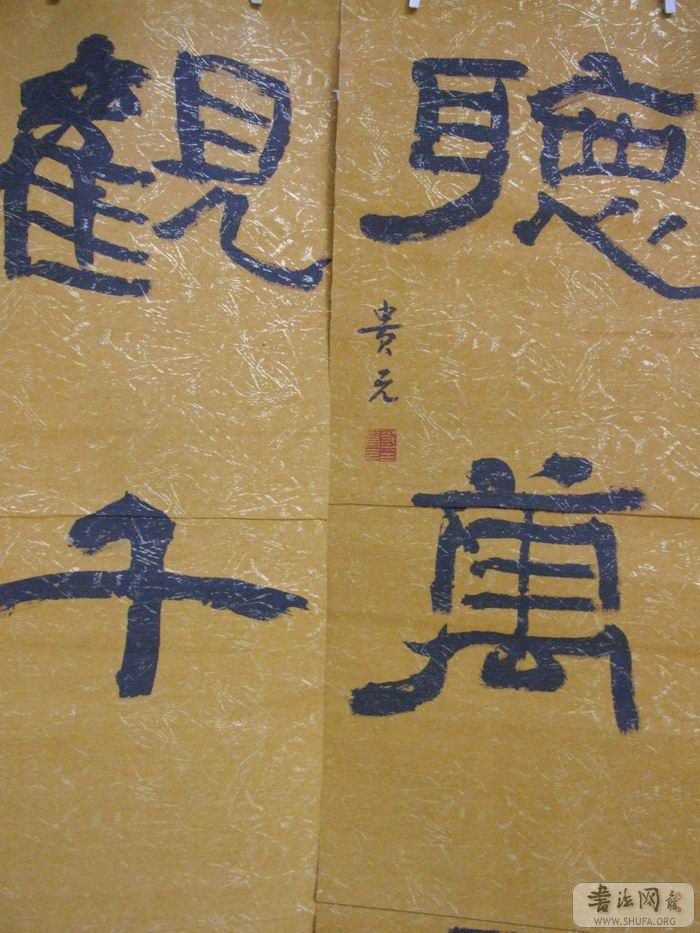 聽萬
貴元
觀千
书法网
WWW.SHUFA.ORG